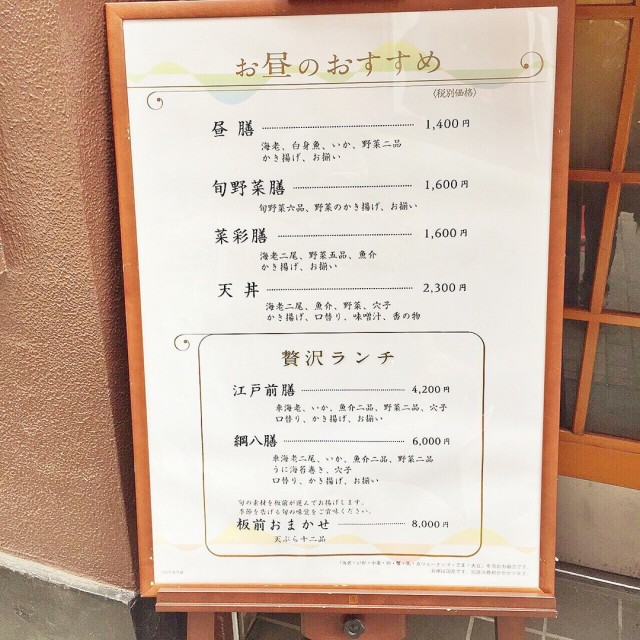 お昼のおすすめ
〈税別価格〉
昼膳 1,400円
海老、白身魚、いか、野菜二品
かき揚げ、お揃い
旬野菜膳 1,600円
旬野菜六品、野菜のかき揚げ、お揃い
菜彩膳 1,600円
海老二尾、野菜五品、魚介
かき揚げ、お揃い
天丼 2,300円
海老二尾、魚介、野菜、穴子
かき揚げ、口替り、味噌汁、香の物
贅沢ランチ
江戸前膳 4,200円
車海老、いか、魚介二品、野菜二品、穴子
口替り、かき揚げ、お揃い
綱八膳 6,000円
車海老二尾、いか、魚介二品、野菜二品
うに海苔巻き、穴子
口替り、かき揚げ、お揃い
旬の素材を板前が選んでお揚げします。
季節を告げる旬の味覚をご賞味ください。
板前おまかせ 8,000円
天ぷら十二品